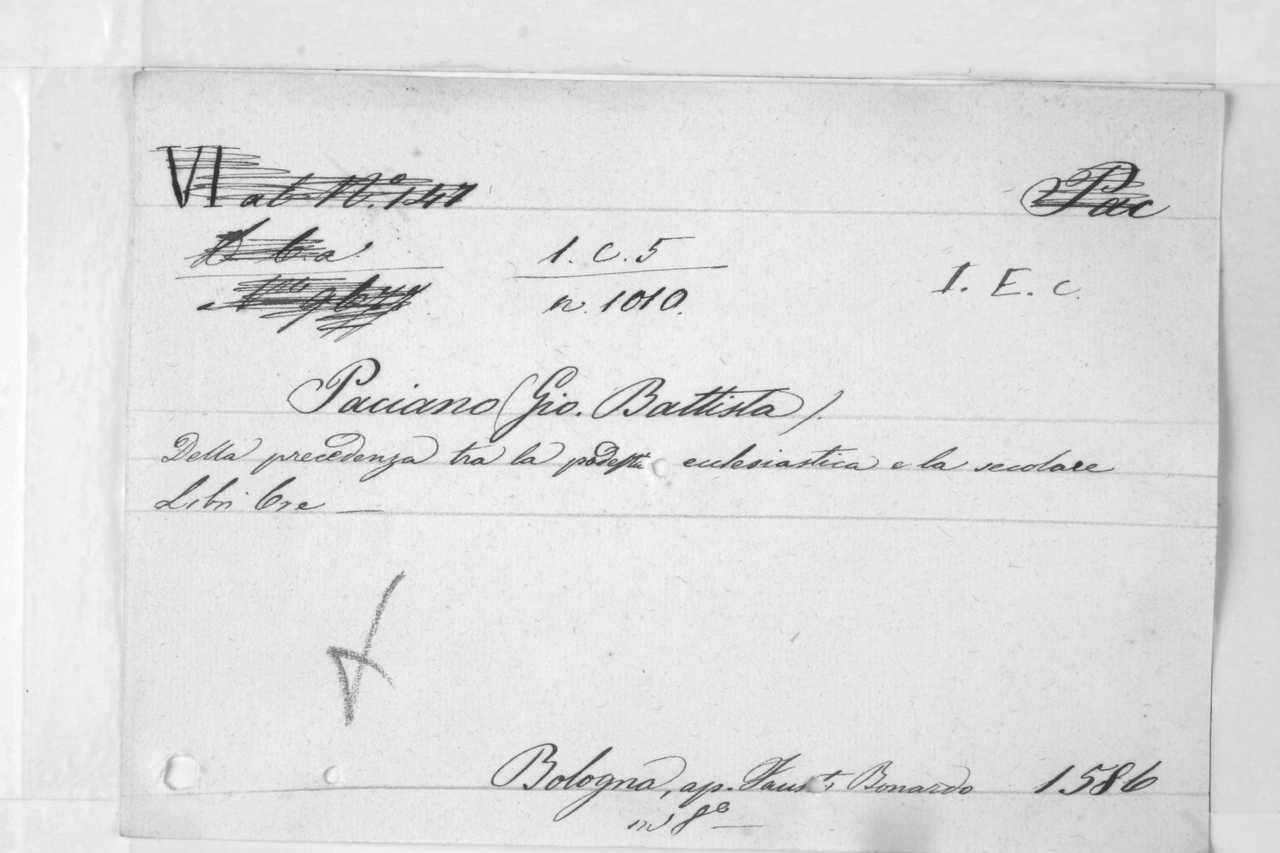 VI ab N.º 147
Pac
1. C. 5
n. 1010.
I. E. c.
Paciano (Gio. Battista).
Della precedenza tra la podestà ecclesiastica e la secolare
Libri tre —
Bologna, ap. Faust. Bonardo 1586
in 8º —